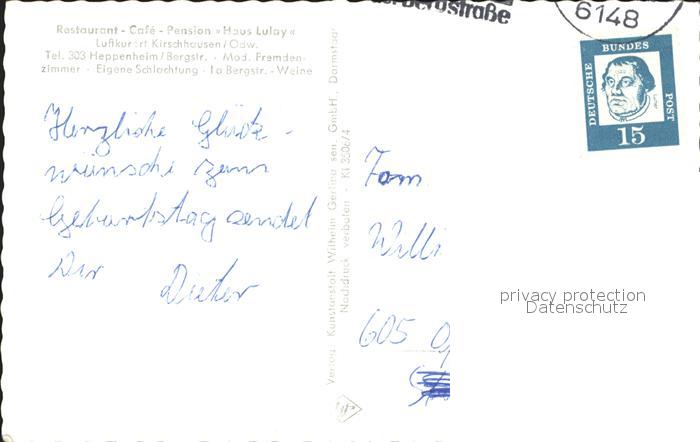 Restaurant - Café - Pension »Haus Lulay«
Luftkurort Kirschhausen/Odw.
Tel. 303 Heppenheim/Bergstr. - Mod. Fremden-
zimmer - Eigene Schlachtung - Ia Bergstr. - Weine
Herzliche Glück-
wünsche zum
Geburtstag sendet
Dir
Dieter
Verlag: Kunstanstalt Wilhelm Gerling sen. GmbH., Darmstadt
Nachdruck verboten - Kl 3506/4
6148
DEUTSCHE
BUNDES
POST
15
Fam
Willi
605
privacy protection
Datenschutz